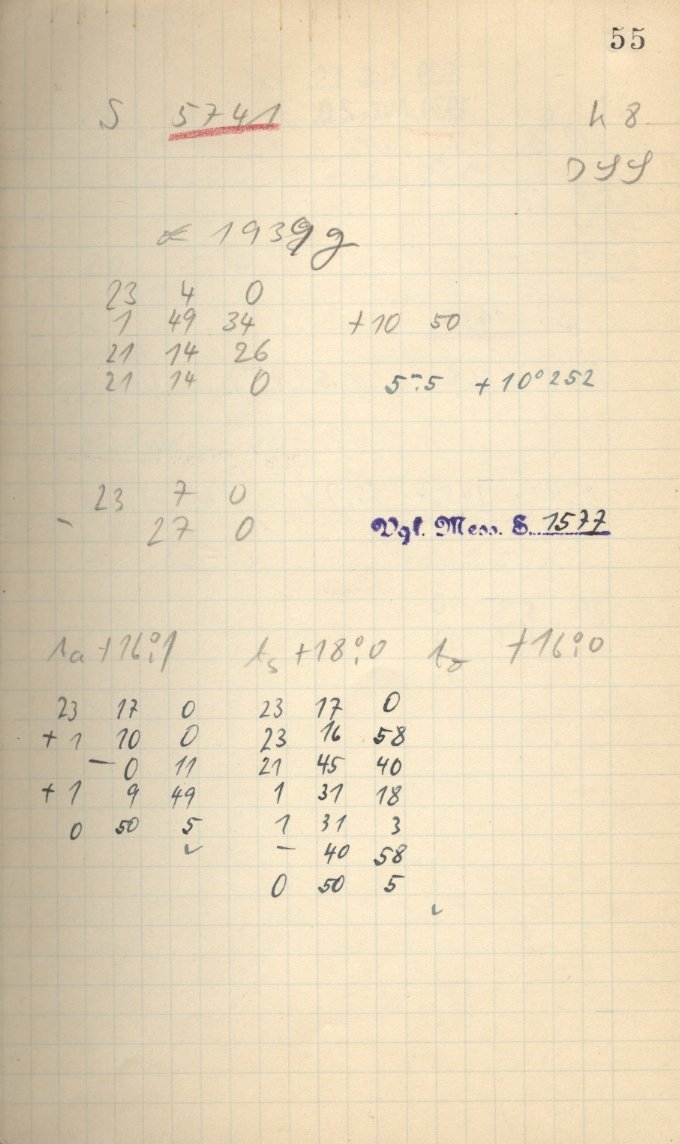 55
S 5741
h 8.
α 1939 g
23 4 0
1 49 34 +10 50
21 14 26
21 14 0 5m.5 +10°252
23 7 0
- 27 0
Vgl. Mess. S. 1577
ta +16°.1 ts +18°.0 +16°.0
23 17 0 23 17 0
+1 10 0 23 16 58
- 0 11 21 45 40
+1 9 49 1 31 18
0 50 5 1 31 3
- 40 58
0 50 5